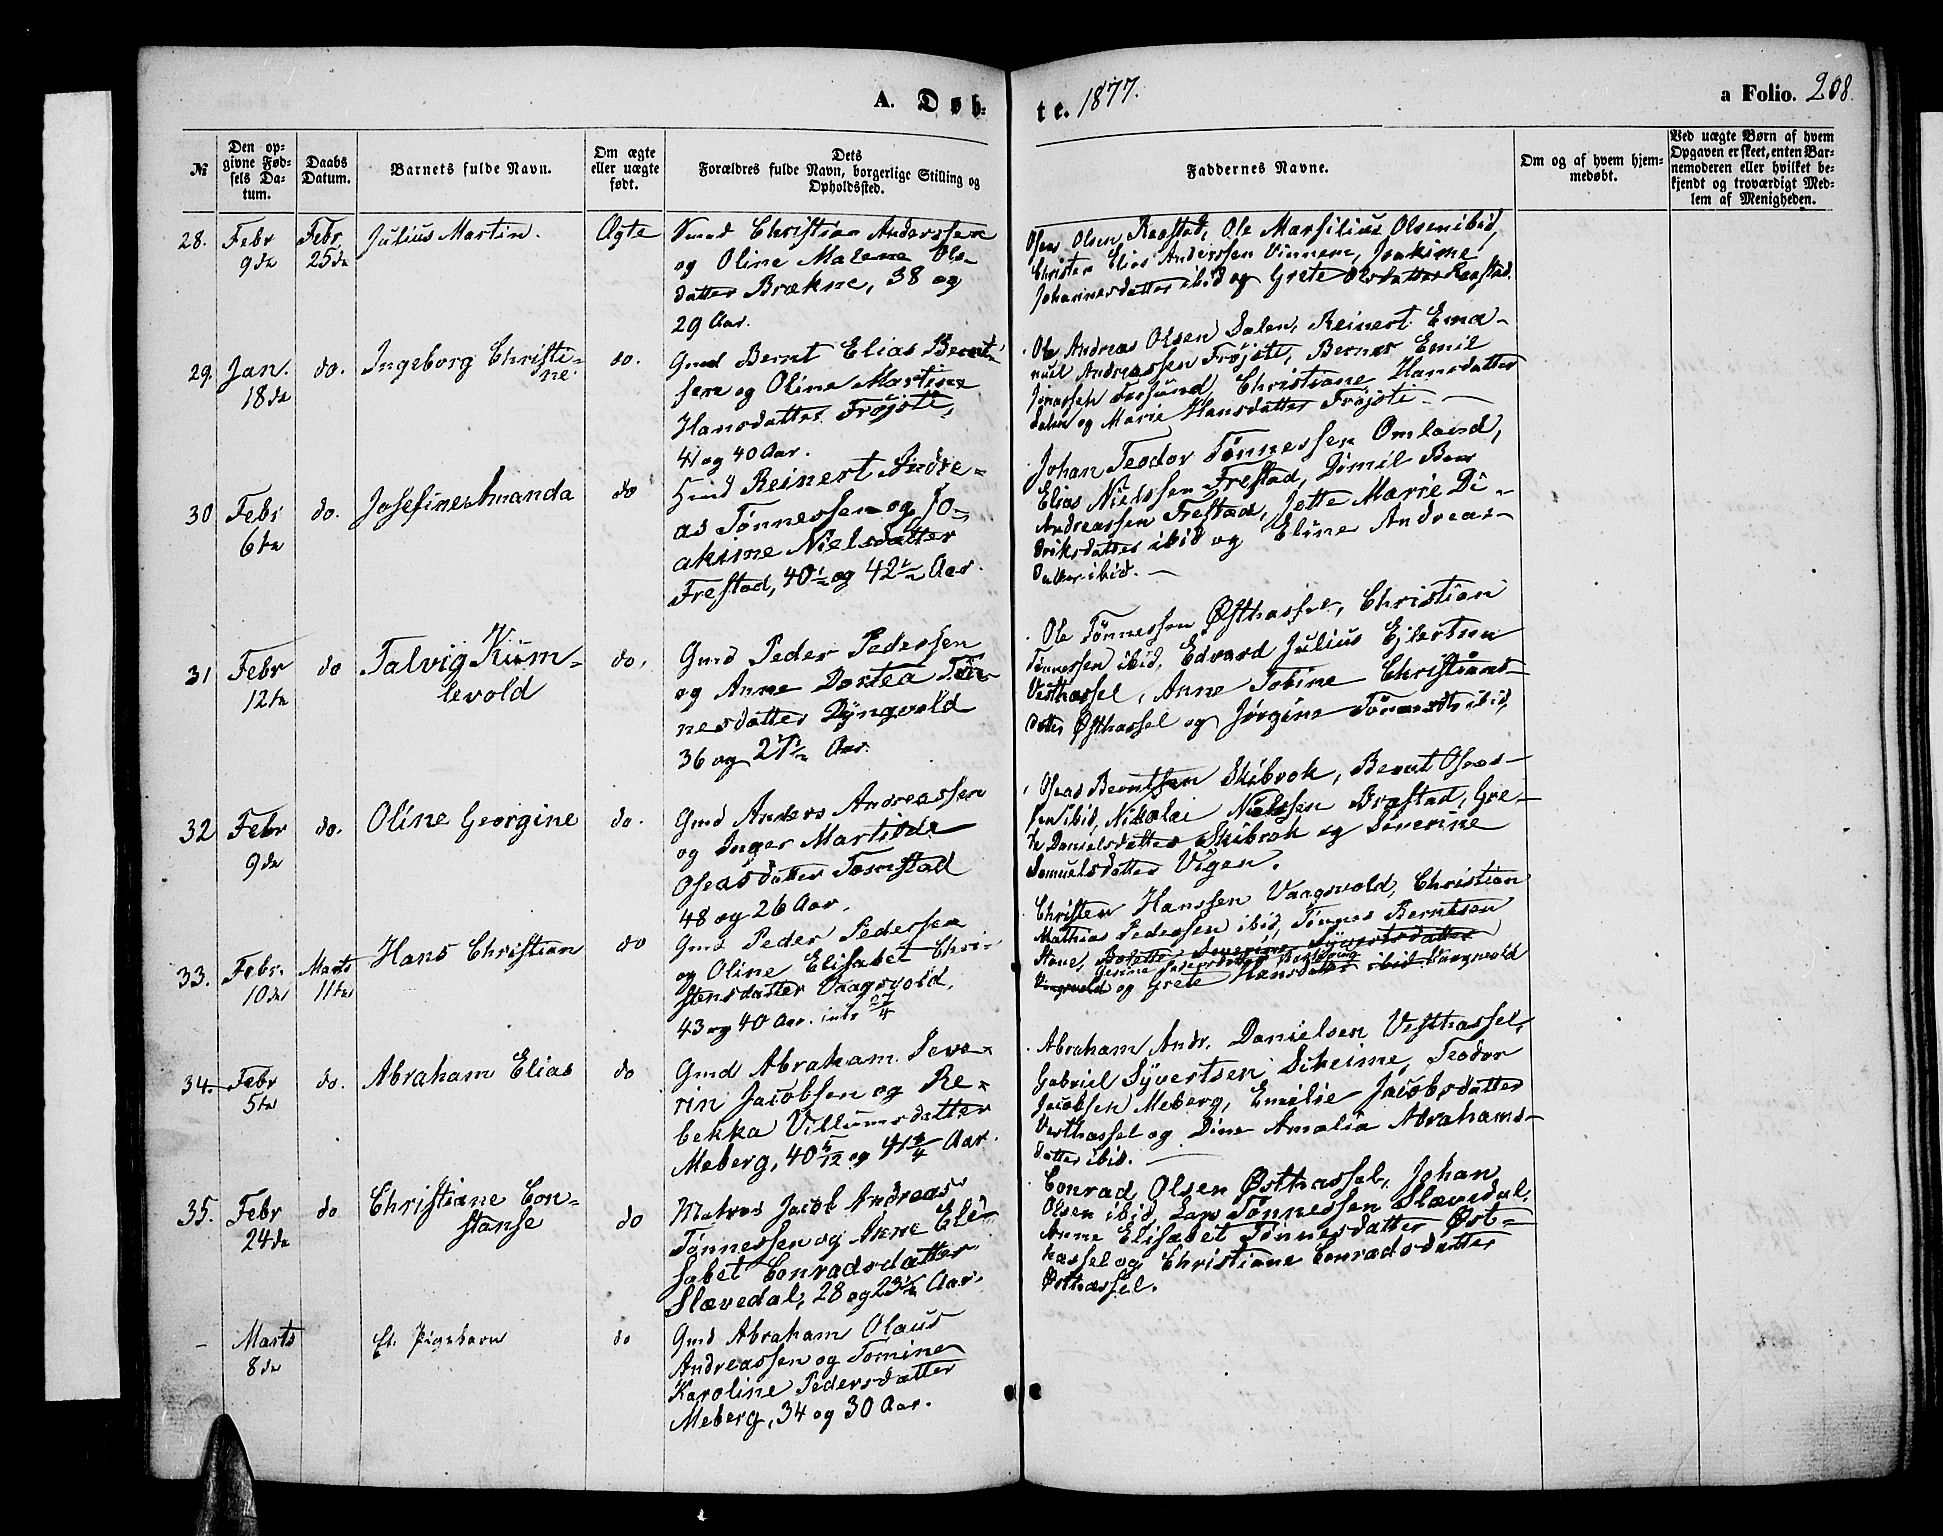 A. Døb-
te. 1877.
a Folio. 208.
№
Den op-
givne Fød-
sels Da-
tum.
Daabs
Datum.
Barnets fulde Navn.
Om ægte
eller uægte
født.
Dets
Forældres fulde Navn, borgerlige Stilling og
Opholdssted.
Faddernes Navne.
Om og af hvem hjem-
medøbt.
Ved uægte Børn af hvem
Opgaven er skeet, enten Bar-
nemoderen eller hvilket be-
kjendt og troværdigt Med-
lem af Menigheden.
28. Febr 9de
Febr 25de
Julius Martin.
Ægte
Christian Anderssen
og Oline Malene Ols-
datter Brækne, 38 og
29 Aar.
Oseas Olsen Raastad, Ole Marsilius Olsen ibid,
Christen Elias Anderssen Vinnem, Joakime
Johannesdatter ibid og Grete Olsdatter Raastad.
29. Jan. 18de
do.
Ingeborg Christi-
ne.
do.
Gmd Bernt Elias Bernt-
sen og Oline Martine
Hansdatter Frøjsti,
41 og 40 Aar.
Ole Andreas Olsen Dalen, Reinert Ema-
nuel Andreassen Frøjsti, Berner Emil
Jonassen Fossund, Christiane Hansdatter
Dalen og Marie Hansdatter Frøjsti
30 Febr 6te
do.
Josefine Amanda
do
Reinert Andre-
as Tønnessen og Jo-
akime Nielsdatter
Frestad, 40½ og 42½ Aar.
Johan Teodor Tønnessen Omland,
Elias Nielssen Frestad,
Andreassen Frestad, Jette Marie Di-
driksdatter ibid og Eline Andreas-
datter ibid.
31 Febr 12te
do
Talvig Kum-
levold
do.
Gmd Peder Pedersen
og Anne Dortea Tøn-
nesdatter Dyngvold
36 og 27½ Aar.
Ole Tønnessen Østhassel, Christian
Tønnessen ibid, Edvard Julius Ejlertsen
Vesthassel, Anne Tobine Christians-
datter Østhassel og Jørgine Tønnesdtr ibid,
32 Febr 9de
do.
Oline Georgine
do.
Gmd Anders Andreassen
og Inger Martilde
Oseasdatter Tomstad
48 og 26 Aar.
Oseas Berntsen Skibrok, Bernt Oseas-
sen ibid, Nikolai Nielssen Bræstad, Gre-
te Danielsdatter Skibrok og Severine
Samuelsdatter Vigen.
33. Febr. 10de
Marts 11te
Hans Christian
do
Gmd Peder Pedersen
og Oline Elisabet Chri-
stensdatter Vaagsvold,
43 og 40 Aar. 27/4
Christen Hanssen Vaagsvold, Christian
Mathias Pedersen ibid, Tønnes Berntsen
Stave, Severine Syvertsdatter
og Grete Hansdatter ibid Vaagsvold
34. Febr 5te
do.
Abraham Elias
do
Gmd Abraham Seve-
rin Jacobsen og Re-
bekka Villumsdatter
Meberg, 40 5/12 og 41 3/4 Aar.
Abraham Andr. Danielsen Vesthassel,
Gabriel Syvertsen Skeime, Teodor
Jacobsen Meberg, Emilie Jacobsdatter
Vesthassel og Dine Amalia Abrahams-
datter ibid.
35. Febr 24de
do
Christiane Con-
stanse
do
Matros Jacob Andreas
Tønnessen og Anne Eli-
sabet Conradsdatter
Slævedal, 28 og 23½ Aar.
Conrad Olsen Østhassel, Johan
Olsen ibid, Lars Tønnessen Slævedal,
Anne Elisabet Tønnesdatter Øst-
hassel og Christiane Conradsdatter
Østhassel.
- Marts 8de
Et Pigebarn
do
Gmd Abraham Olaus
Andreassen og Tomine
Karoline Pedersdatter
Meberg, 34 og 30 Aar.